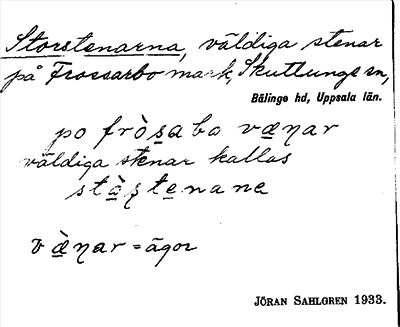 Storstenarna, väldiga stenar
på Frossarbo mark, Skuttunge sn,
Bälinge hd, Uppsala län.
po fròsabo væŋar
väldiga stenar kallas
stɑ̀ʂtenane
væ̀ŋar = ägor
JÖRAN SAHLGREN 1933.